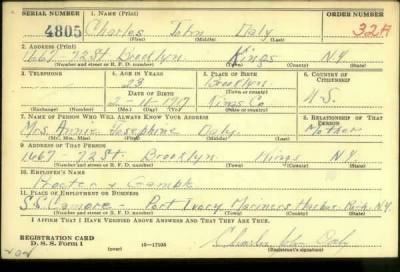 SERIAL NUMBER 1. NAME (Print) ORDER NUMBER
4805 Charles John Daly 32A
(First) (Middle) (Last)
2. ADDRESS (Print)
1667 72 St Brooklyn Kings N.Y.
(Number and street or R. F. D. number) (Town) (County) (State)
3. TELEPHONE 4. AGE IN YEARS 5. PLACE OF BIRTH 6. COUNTRY OF CITIZENSHIP
23 Brooklyn
DATE OF BIRTH (Town or county)
1917 Kings Co U.S.
(Exchange) (Number) (Mo.) (Day) (Yr.) (State or country)
7. NAME OF PERSON WHO WILL ALWAYS KNOW YOUR ADDRESS 8. RELATIONSHIP OF THAT PERSON
Mrs. Annie Josephine Daly Mother
(Mr., Mrs., Miss) (First) (Middle) (Last)
9. ADDRESS OF THAT PERSON
1667 72 St. Brooklyn Kings N.Y.
(Number and street or R. F. D. number) (Town) (County) (State)
10. EMPLOYER'S NAME
Procter Gamble
11. PLACE OF EMPLOYMENT OR BUSINESS
S.S. Port Ivory Mariners Harbor N.Y.
(Number and street or R. F. D. number) (Town) (County) (State)
I AFFIRM THAT I HAVE VERIFIED ABOVE ANSWERS AND THAT THEY ARE TRUE.
REGISTRATION CARD
D. S. S. Form 1 (over) 16-17105 Charles John Daly